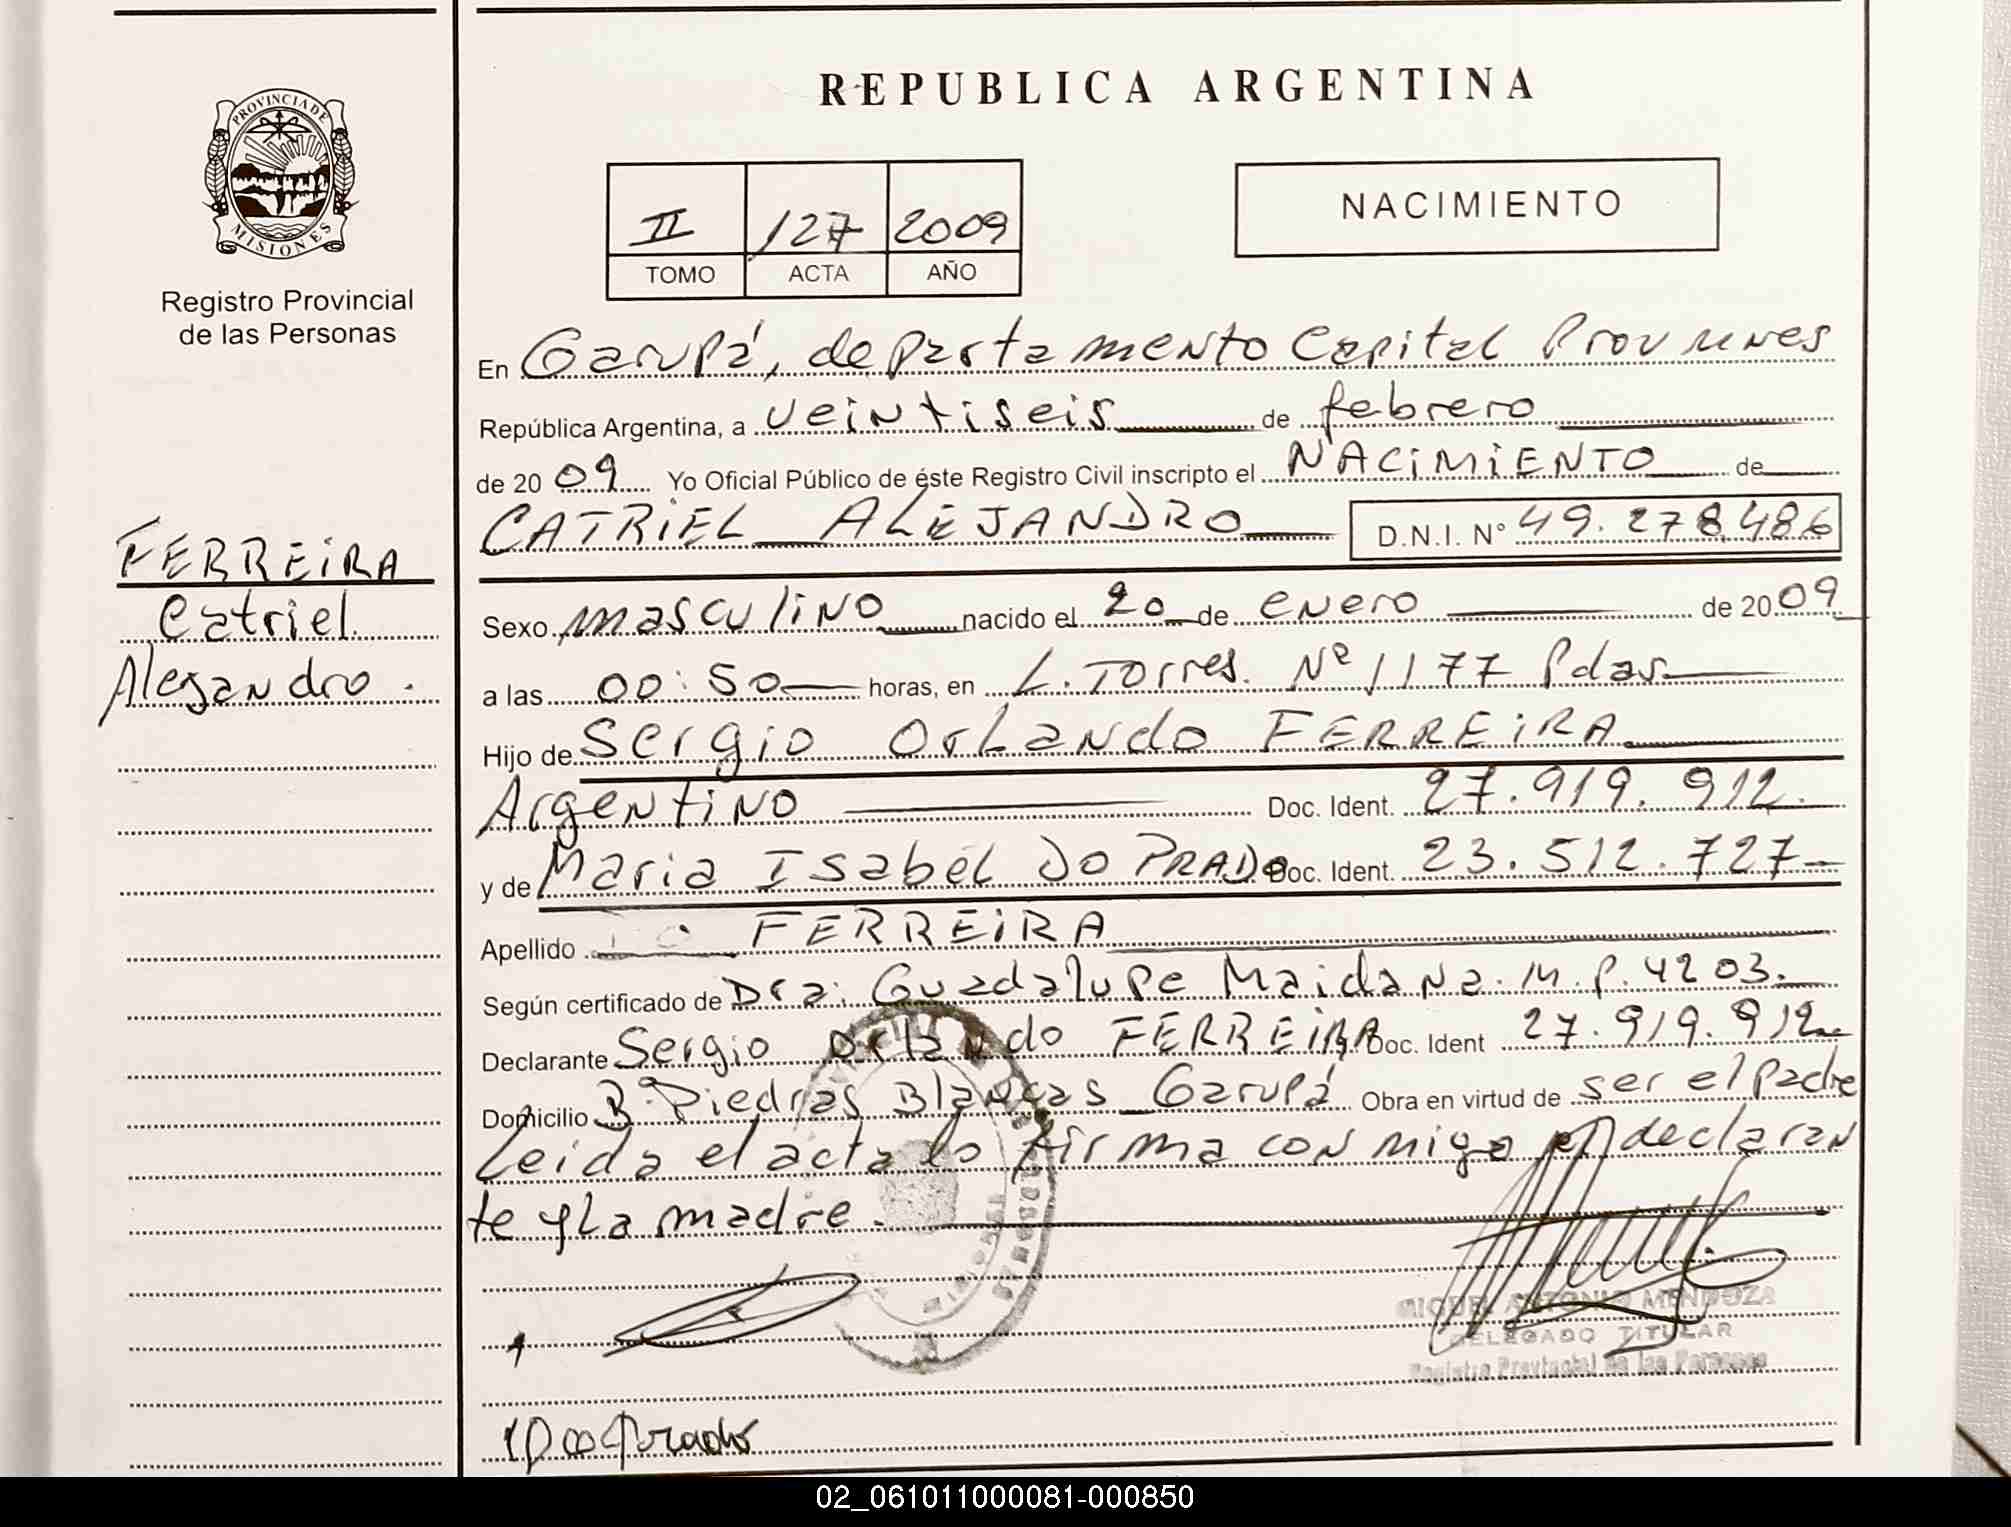 REPUBLICA ARGENTINA
PROVINCIA DE
MISIONES
Registro Provincial
de las Personas
II 127 2009
TOMO ACTA AÑO
NACIMIENTO
En Garupá, departamento Capital
República Argentina, a veintiseis de febrero
de 20 09 Yo Oficial Público de éste Registro Civil inscripto el NACIMIENTO de
CATRIEL ALEJANDRO D.N.I. N° 49.278.486
FERREIRA
Catriel
Alejandro.
Sexo masculino nacido el 20 de enero de 20 09
a las 00:50 horas, en L. Torres. Nº 1177 Pdas
Hijo de Sergio Orlando FERREIRA
Argentino Doc. Ident. 27.919.912.
y de Maria Isabel DO PRADO Doc. Ident. 23.512.727
Apellido FERREIRA
Según certificado de Dra. Guadalupe Maidana. M.P. 4203.
Declarante Sergio Orlando FERREIRA Doc. Ident 27.919.912
Domicilio Bº Piedras Blancas Garupá Obra en virtud de ser el padre
Leida el acta lo firma conmigo el declaran
te y La madre.
MIGUEL ANTONIO MENDOZA
DELEGADO TITULAR
Registro Provincial de las Personas
02_061011000081-000850